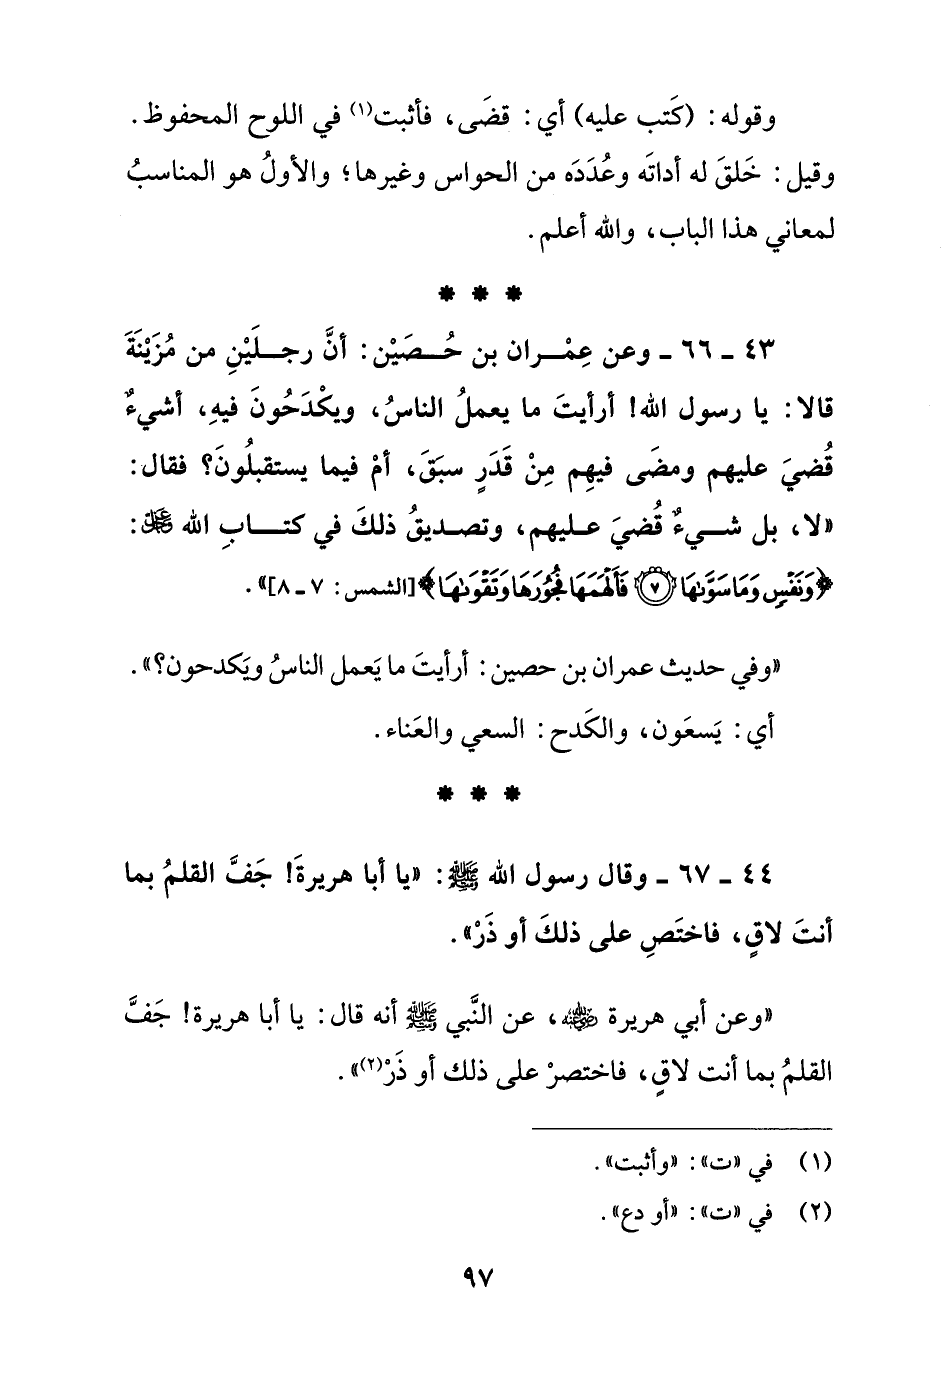 وقوله: (كَتب عليه) أي: قضَى، فأثبت(١) في اللوح المحفوظ.
وقيل: خَلقَ له أداتَه وعُدَدَه من الحواس وغيرها؛ والأولُ هو المناسبُ
لمعاني هذا الباب، والله أعلم.
* * *
٤٣ ـ ٦٦ ـ وعن عِمْران بن حُصَيْن: أنَّ رجلَيْنِ من مُزَيْنَةَ
قالا: يا رسول الله! أرأيتَ ما يعملُ الناسُ، ويكْدَحُونَ فيهِ، أشيءٌ
قُضيَ عليهم ومضَى فيهِم مِنْ قَدَرٍ سبَقَ، أمْ فيما يستقبلُونَ؟ فقال:
«لا، بل شيءٌ قُضيَ عليهم، وتصديقُ ذلكَ في كتابِ الله ﷿:
﴿وَنَفْسٍ وَمَا سَوَّىٰهَا ٧ فَأَلْهَمَهَا فُجُورَهَا وَتَقْوَىٰهَا﴾[الشمس: ٧ ـ ٨]».
«وفي حديث عمران بن حصين: أرأيتَ ما يَعمل الناسُ ويَكدحون؟».
أي: يَسعَون، والكَدح: السعي والعَناء.
* * *
٤٤ ـ ٦٧ ـ وقال رسول الله ﷺ: «يا أبا هريرةَ! جَفَّ القلمُ بما
أنتَ لاقٍ، فاختَصِ على ذلكَ أو ذَرْ».
«وعن أبي هريرة رضي الله عنه، عن النَّبي ﷺ أنه قال: يا أبا هريرة! جَفَّ
القلمُ بما أنت لاقٍ، فاختصرْ على ذلك أو ذَرْ(٢)».
(١) في «ت»: «وأثبت».
(٢) في «ت»: «أو دع».
٩٧